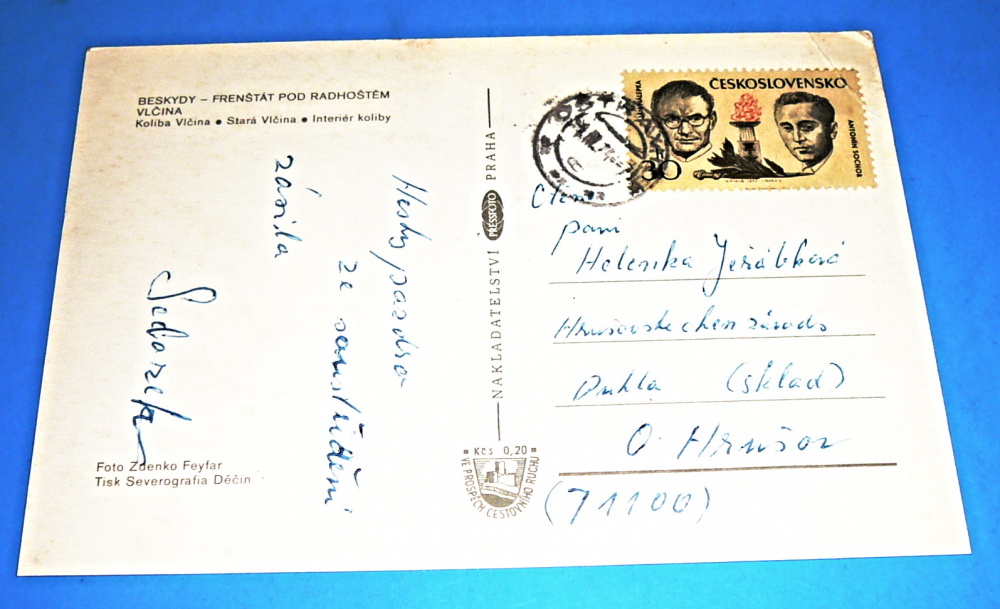 BESKYDY – FRENŠTÁT POD RADHOŠTĚM
VLČINA
Koliba Vlčina ● Stará Vlčina ● Interiér koliby
Hezký pozdrav
ze soustředění
zasílá
Foto Zdenko Feyfar
Tisk Severografia Děčín
NAKLADATELSTVÍ PRESSFOTO PRAHA
Kčs 0,20
VE PROSPĚCH CESTOVNÍHO RUCHU
ČESKOSLOVENSKO
ANTONÍN SOCHOR
30
paní
Helenka Jeřábková
Hrušovské chem závody
Dukla (sklad)
O Hrušov
(71100)